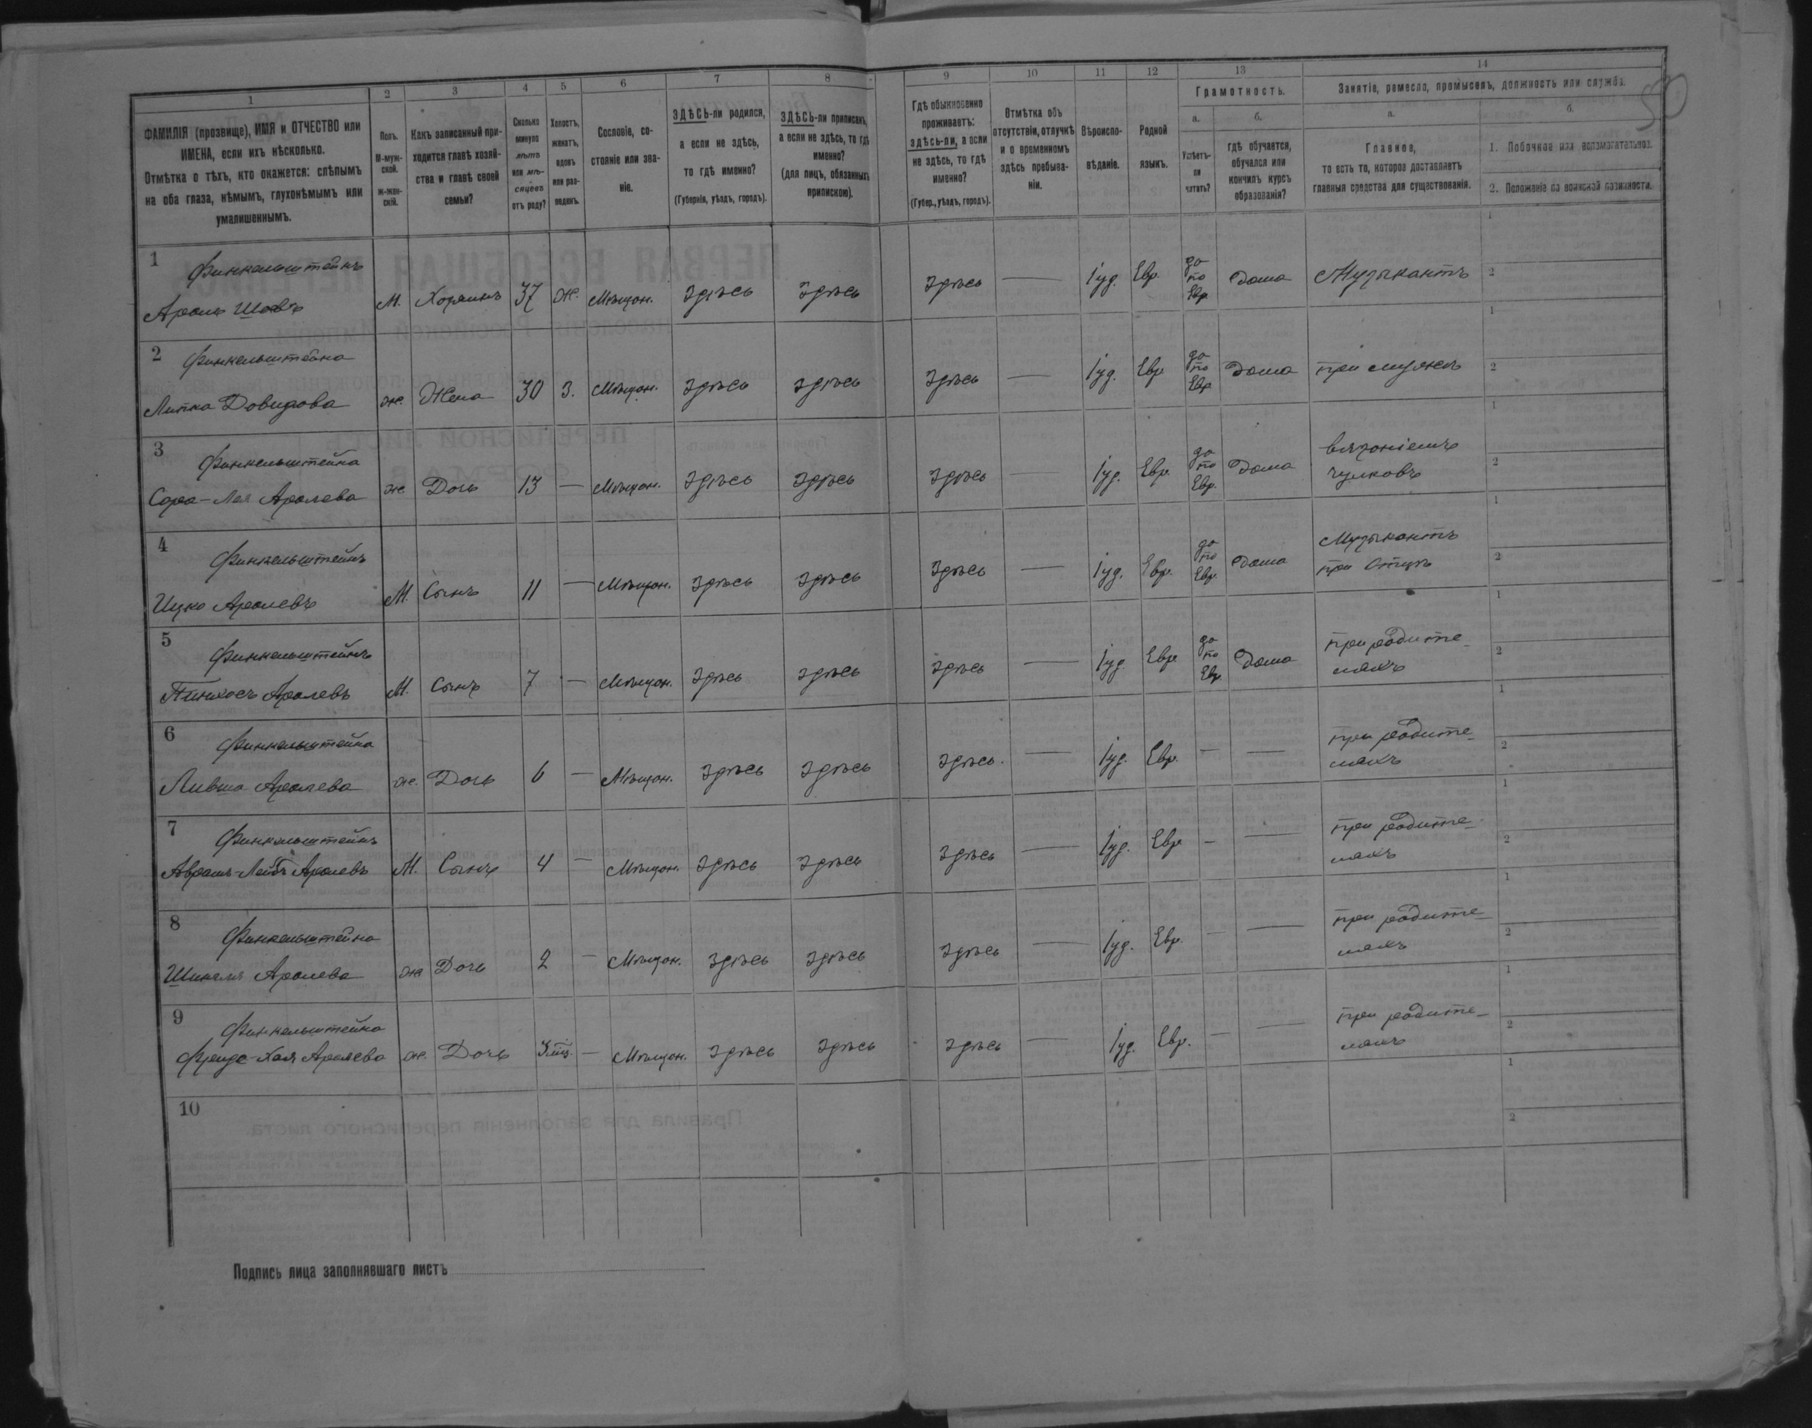 50
1
2
3
4
5
6
7
8
9
10
11
12
13
14
ФАМИЛІЯ (прозвище), ИМЯ и ОТЧЕСТВО или
ИМЕНА, если ихъ нѣсколько.
Отмѣтка о тѣхъ, кто окажется: слѣпымъ
на оба глаза, нѣмымъ, глухонѣмымъ или
умалишеннымъ.
Полъ.
М-муж-
ской.
ж-жен-
скій.
Какъ записанный при-
ходится главѣ хозяй-
ства и главѣ своей
семьи?
Сколько
минуло
лѣтъ
или мѣ-
сяцевъ
отъ роду?
Холостъ,
женатъ,
вдовъ
или раз-
веденъ.
Сословіе, со-
стояніе или зва-
ніе.
ЗДѢСЬ-ли родился,
а если не здѣсь,
то гдѣ именно?
(Губернія, уѣздъ, городъ).
ЗДѢСЬ-ли приписанъ,
а если не здѣсь, то гдѣ
именно?
(для лицъ, обязанныхъ
припискою).
Гдѣ обыкновенно
проживаетъ:
здѣсь-ли, а если
не здѣсь, то гдѣ
именно?
(Губер., уѣздъ, городъ).
Отмѣтка объ
отсутствіи, отлучкѣ
и о временномъ
здѣсь пребыва-
ніи.
Вѣроиспо-
вѣданіе.
Родной
языкъ.
Грамотность.
а.
Умѣетъ-
ли
читать?
б.
гдѣ обучается,
обучался или
кончилъ курсъ
образованія?
Занятіе, ремесло, промыселъ, должность или служба.
а.
Главное,
то есть то, которое доставляетъ
главныя средства для существованія.
б.
1. Побочное или вспомогательное.
2. Положеніе по воинской повинности.
1 Финкельштейнъ
Ароль Шоевъ М. Хозяинъ 37 Ж. Мѣщан. Здѣсь Здѣсь Здѣсь — Іуд. Евр. да по Евр. Дома Музыкантъ
2 Финкельштейна
Липка Довидова ж. Жена 30 З. Мѣщан. Здѣсь Здѣсь Здѣсь — Іуд. Евр. да по Евр. Дома при мужѣ
3 Финкельштейна
Сора-Лея Аролева ж. Дочь 13 — Мѣщан. Здѣсь Здѣсь Здѣсь — Іуд. Евр. да по Евр. Дома вязаніемъ
чулковъ
4 Финкельштейнъ
Ицко Аролевъ М. Сынъ 11 — Мѣщан. Здѣсь Здѣсь Здѣсь — Іуд. Евр. да по Евр. Дома Музыкантъ
при Отцѣ
5 Финкельштейнъ
Пинхосъ Аролевъ М. Сынъ 7 — Мѣщан. Здѣсь Здѣсь Здѣсь — Іуд. Евр. да по Евр. Дома при родите-
ляхъ
6 Финкельштейна
Ливша Аролева ж. Дочь 6 — Мѣщан. Здѣсь Здѣсь Здѣсь. — Іуд. Евр. — — при родите-
ляхъ
7 Финкельштейнъ
Аврамъ-Лейбъ Аролевъ М. Сынъ 4 — Мѣщан. Здѣсь Здѣсь Здѣсь — Іуд. Евр. — — при родите-
ляхъ
8 Финкельштейна
Аролева ж. Дочь 2 — Мѣщан. Здѣсь Здѣсь Здѣсь — Іуд. Евр. — — при родите-
ляхъ
9 Финкельштейна
Фрейде-Хая Аролева ж. Дочь 3 мѣс. — Мѣщан. Здѣсь Здѣсь Здѣсь — Іуд. Евр. — — при родите-
ляхъ
10
Подпись лица заполнявшаго листъ